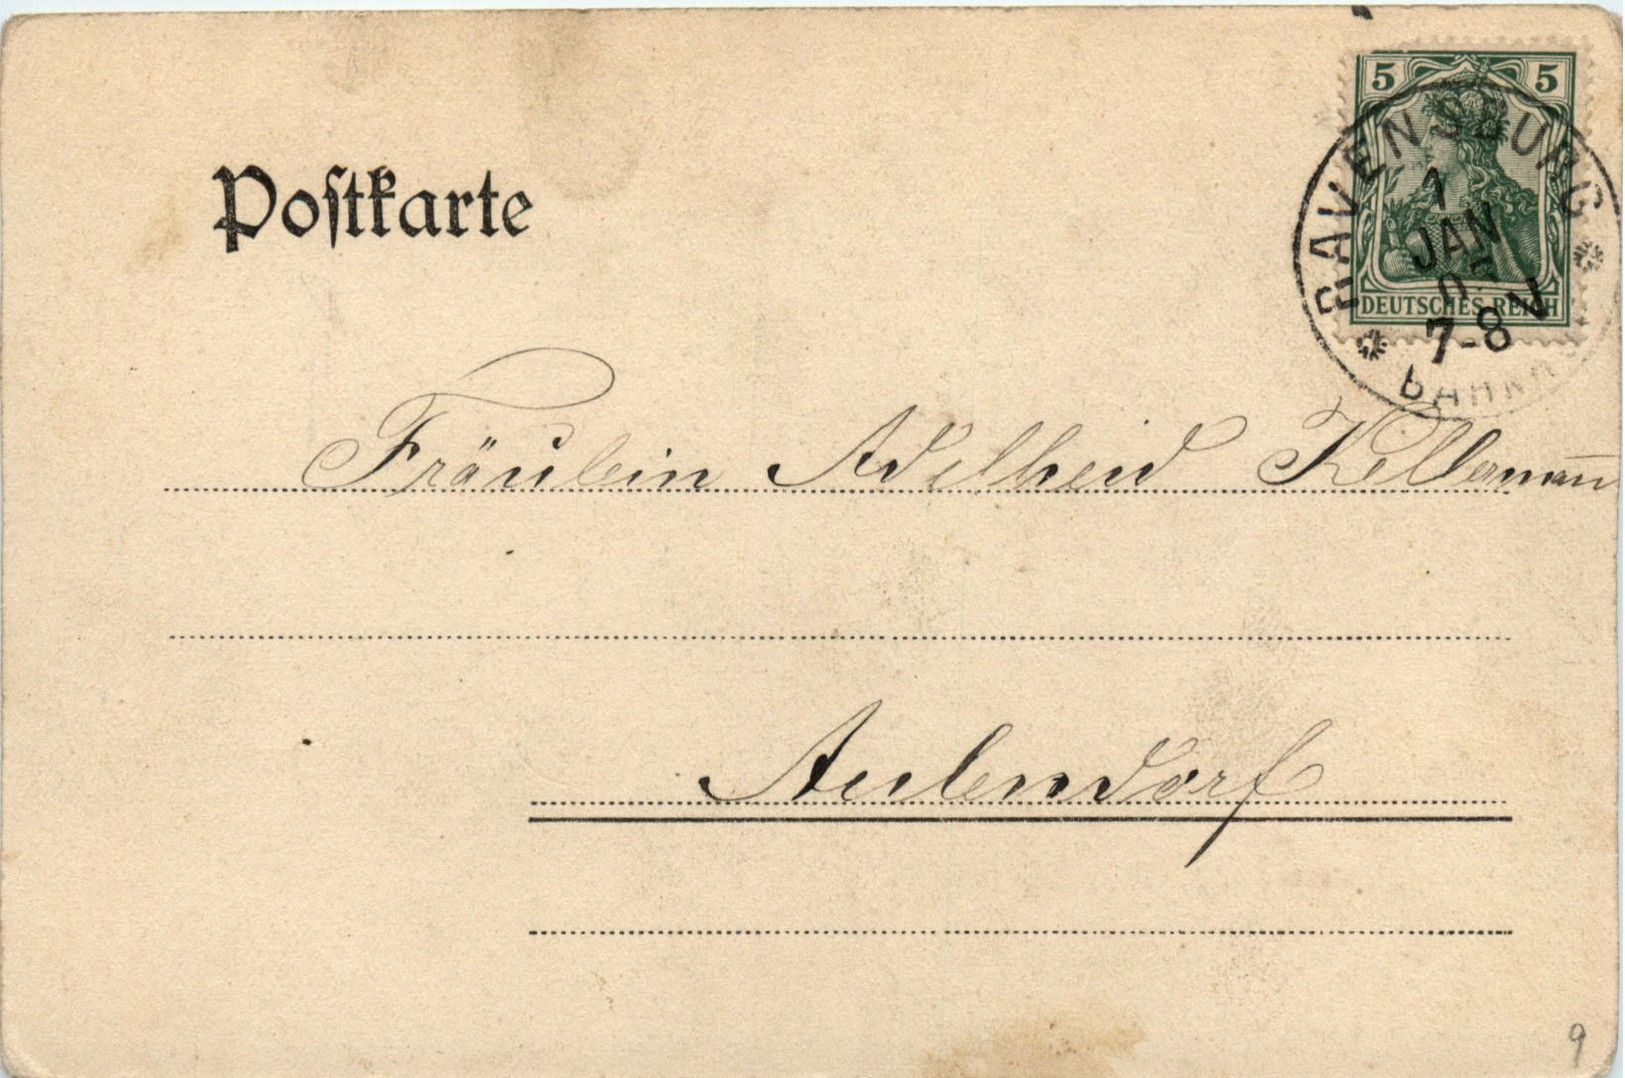 5 5
RAVENSBURG
1
JAN
05
7-8 V
DEUTSCHES REICH
BAHNH
Poſtkarte
Fräulein Adelheid Kellerman̄
Aulendorf
9